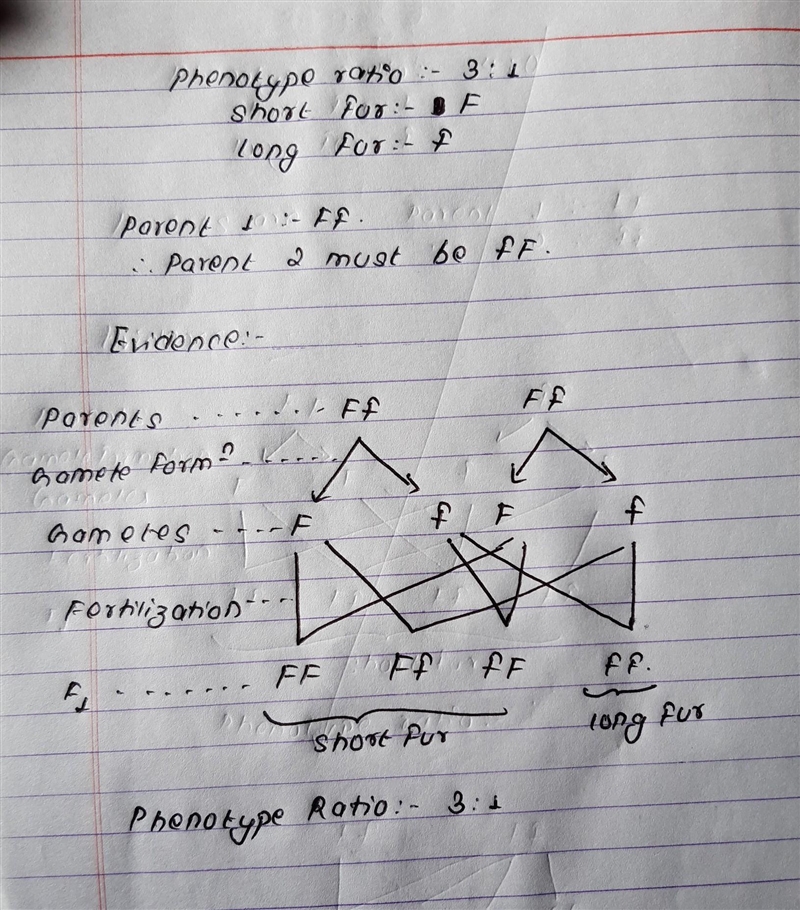 Phenotype ratio :- 3:1
Short fur:- F
Long fur:- f
Parent 1 :- Ff.
∴ Parent 2 must be fF.
Evidence:-
Parents .......- Ff Ff
Gamete formn -.....
Gametes ----- F f F f
Fertilization----
F1 ........ FF Ff fF ff.
Short fur long fur
Phenotype Ratio:- 3:1